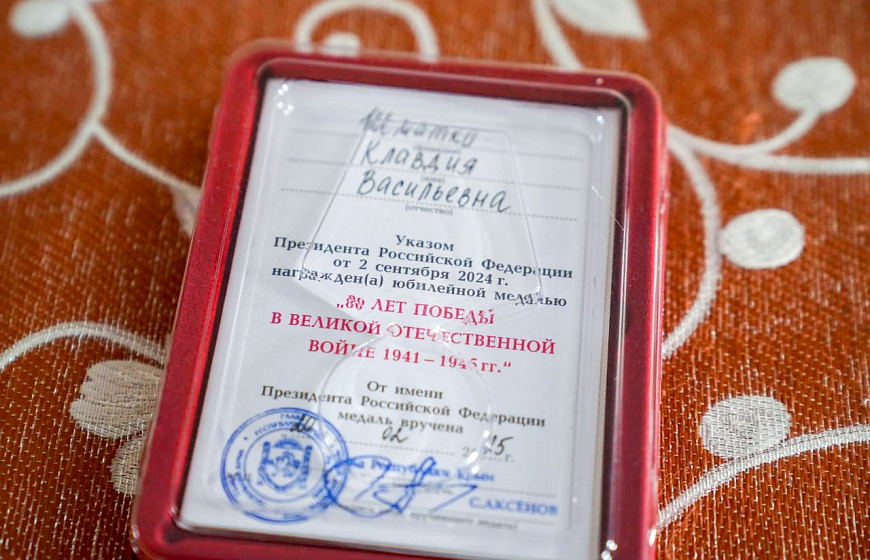 Шматко
Клавдия
(имя)
Васильевна
(отчество)
Указом
Президента Российской Федерации
от 2 сентября 2024 г.
награжден(а) юбилейной медалью
„80 ЛЕТ ПОБЕДЫ
В ВЕЛИКОЙ ОТЕЧЕСТВЕННОЙ
ВОЙНЕ 1941 – 1945 гг.“
От имени
Президента Российской Федерации
медаль вручена
20 02 2025 г.
Глава Республики Крым
С.АКСЁНОВ